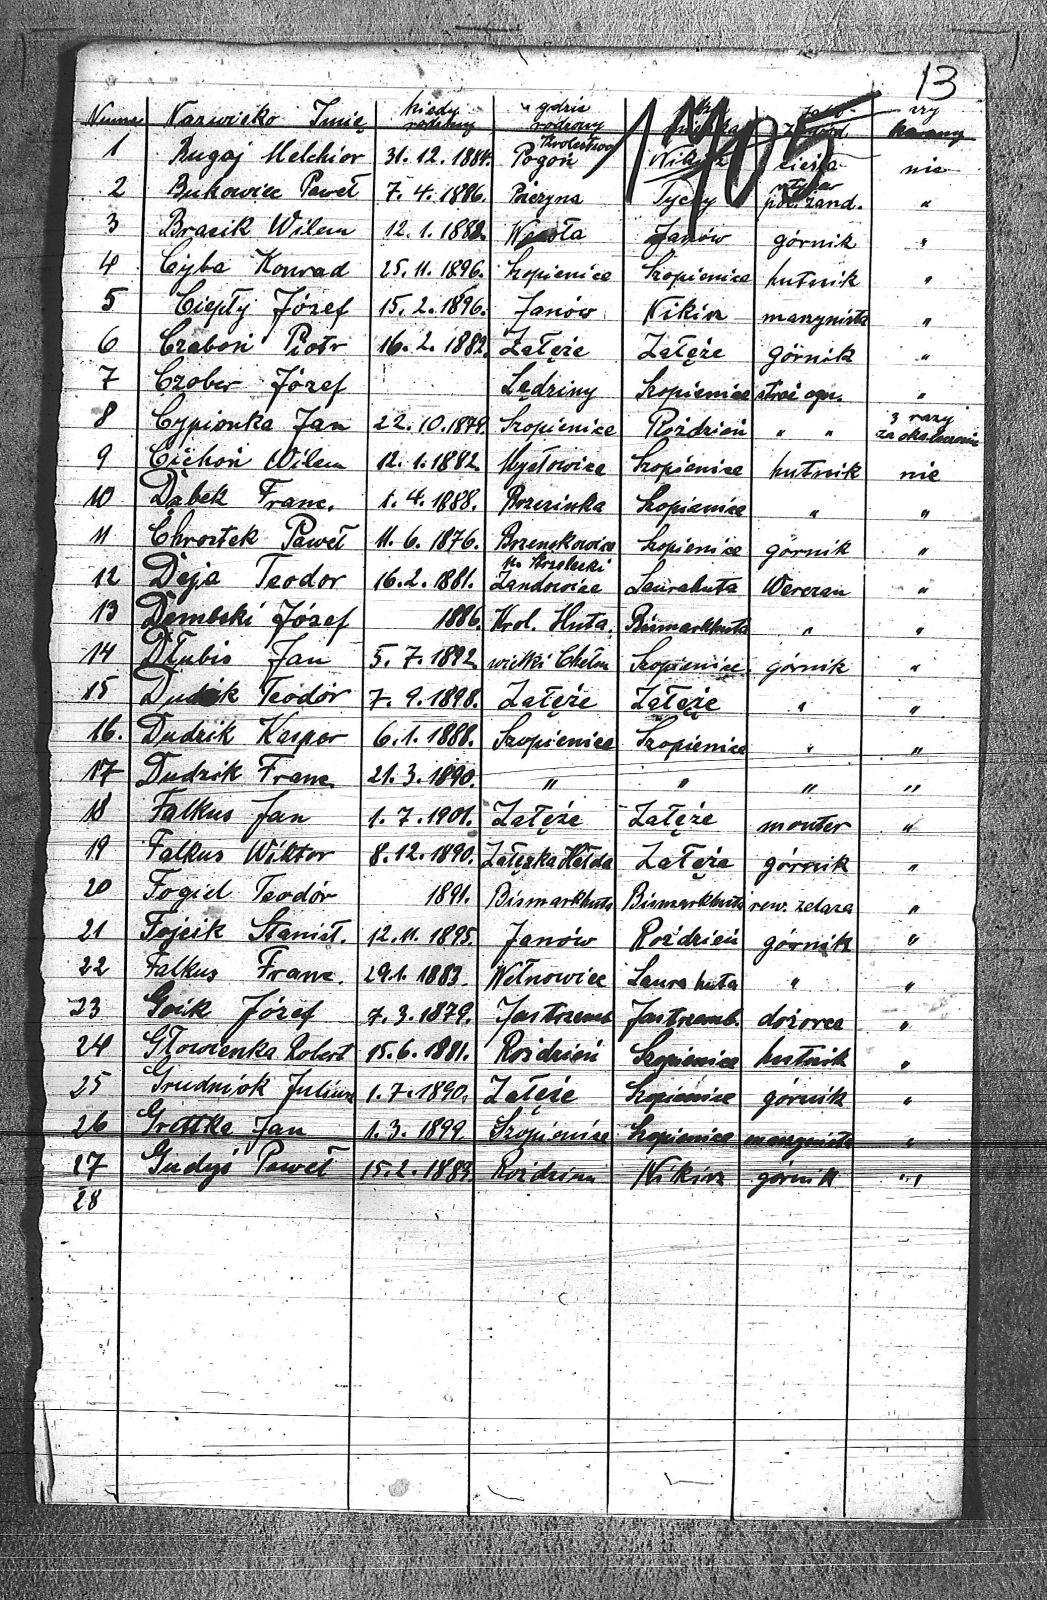 13
1705
Numer Nazwisko Imię kiedy rodzony gdzie rodzony zawód czy karany
1 Bugaj Melchior 31.12.1884. Pogoń Królestwo Nikisz cieśla nie
2 Bukowiec Paweł 7.4.1886. Tychy żand. "
3 Brasik Wilem 12.1.1882. Wesoła Janów górnik "
4 Cyba Konrad 25.11.1896. Szopienice Szopienice hutnik "
5 Ciepły Józef 15.2.1896. Janów Nikisz maszynista "
6 Czaboń Piotr 16.2.1882. Załęże Załęże górnik "
7 Czober Józef Lędziny Szopienice straż ogn. "
8 Cypionka Jan 22.10.1879. Szopienice Roździeń " " 3 razy za
9 Cichoń Wilem 12.1.1882. Mysłowice Szopienice hutnik nie
10 Dąbek Franc. 1.4.1888. Brzezinka Szopienice " "
11 Chrostek Paweł 11.6.1876. Brzenskowice Szopienice górnik "
12 Deja Teodor 16.2.1881. p. Strzelecki Żandowice Laurahuta Werczan "
13 Dembski Józef 1886. Krol. Huta. Bismarkhuta " "
14 Dłubis Jan 5.7.1892. wielki Chełm Szopienice górnik "
15 Dudek Teodór 7.9.1898. Załęże Załęże " "
16. Dudzik Kasper 6.1.1888. Szopienice Szopienice " "
17 Dudzik Franc. 21.3.1890. " " " "
18 Falkus Jan 1.7.1901. Załęże Załęże monter "
19 Falkus Wiktor 8.12.1890. Załęzka Hałda Załęże górnik "
20 Fogiel Teodór 1891. Bismarkhuta Bismarkhuta rew. żelaza "
21 Fojcik Stanisł. 12.11.1895. Janów Roździeń górnik "
22 Falkus Franc. 29.1.1883. Wełnowiec Laura huta " "
23 Goik Józef 7.3.1879. Jastrzemb Jastrzemb. dozorca "
24 Głowienka Robert 15.6.1881. Roździeń Szopienice hutnik "
25 Grudniok Juliusz 1.7.1890. Załęże Szopienice górnik "
26 Grattka Jan 1.3.1899. Szopienice Szopienice maszynista "
27 Gudyś Paweł 15.2.1883. Roździeń Nikisz górnik "
28